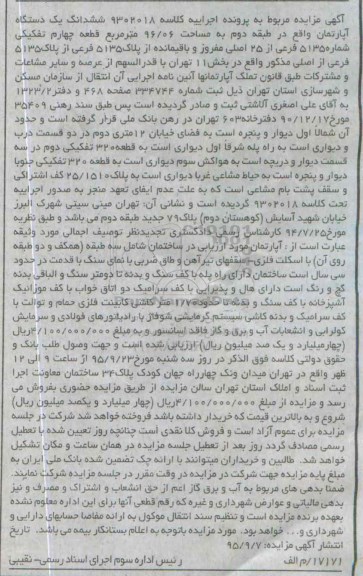 آگهی مزایده مربوط به پرونده اجراییه کلاسه ۹۳۰۲۰۱۸ ششدانگ یک دستگاه
آپارتمان واقع در طبقه دوم به مساحت ۹۶/۰۶ مترمربع قطعه چهارم تفکیکی
شماره ۵۱۳۵ فرعی از ۲۵ اصلی مفروز و باقیمانده از پلاک ۵۱۳۵ فرعی از پلاک ۵۱۳۵
فرعی از اصلی مذکور واقع در بخش ۱۱ تهران با قدرالسهم از عرصه و سایر مشاعات
و مشترکات طبق قانون تملک آپارتمانها آئین نامه اجرایی آن انتقال از سازمان مسکن
و شهرسازی استان تهران ذیل ثبت شماره ۳۳۴۷۴۴ صفحه ۴۶۸ و دفتر ۱۳۲۳/۲
به آقای علی اصغری آلاشتی ثبت و صادر گردیده است پس طبق سند رهنی ۳۵۴۰۹
مورخ ۹۰/۱۲/۱۷ دفترخانه ۶۰۳ تهران در رهن بانک ملی قرار گرفته است و حدود
آن شمالا اول دیواری و پنجره است به فضای خیابان ۱۲ متری دوم در دو قسمت درب
و دیواری است به راه پله شرقا اول دیواری است به قطعه ۳۲۰ تفکیکی دوم در سه
قسمت دیوار و دریچه است به هواکش سوم دیواری است به قطعه ۳۲۰ تفکیکی جنوبا
دیوار و پنجره است به حیاط مشاعی غربا دیواری است به پلاک ۲۵/۱۵۱۰ کف اشتراکی
و سقف پشت بام مشاعی است که به علت عدم ایفای تعهد منجر به صدور اجراییه
تحت کلاسه ۹۳۰۲۰۱۸ گردیده است و نشانی آن: تهران مینی سیتی شهرک البرز
خیابان شهید آسایش (کوهستان دوم) پلاک ۷۹ جدید طبقه دوم می باشد و طبق نظریه
مورخ ۹۴/۷/۲۵ کارشناس رسمی دادگستری تجدیدنظر توصیف اجمالی مورد وثیقه
عبارت است از: آپارتمان مورد ارزیابی در ساختمان شامل سه طبقه (همکف و دو طبقه
روی آن) با اسکلت فلزی - سقفهای تیرآهن و طاق ضربی با نمای سنگ با قدمت در حدود
سی سال است ساختمان دارای راه پله با کف سنگ و بدنه تا دومتر سنگ و الباقی بدنه
گچ و رنگ است دارای هال و پذیرایی با کف سرامیک دو اتاق خواب با کف موزائیک
آشپزخانه با کف سنگ و بدنه تا حدود ۱/۷۰ متر کاشی کابینت فلزی حمام و توالت با
کف سرامیک و بدنه کاشی سیستم گرمایشی شوفاژ با رادیاتورهای فولادی و سرمایش
کولرآبی و انشعابات آب و برق و گاز فاقد آسانسور و به مبلغ ۴/۱۰۰/۰۰۰/۰۰۰ ریال
(چهارمیلیارد و یک صد میلیون ریال) ارزیابی شده است و جهت وصول طلب بانک و
حقوق دولتی کلاسه فوق الذکر در روز سه شنبه مورخ ۹۵/۹/۲۳ از ساعت ۹ الی ۱۲
ظهر واقع در تهران میدان ونک چهارراه جهان کودک پلاک ۳۴ ساختمان معاونت اجرا
ثبت اسناد و املاک استان تهران سالن مزایده از طریق مزایده حضوری بفروش می
رسد و مزایده از مبلغ ۴/۱۰۰/۰۰۰/۰۰۰ ریال (چهار میلیارد و یکصد میلیون ریال)
شروع و به بالاترین قیمت که خریدار داشته باشد فروخته خواهد شد شرکت در جلسه
مزایده برای عموم آزاد است و فروش کلا نقدی است چنانچه روز تعیین شده با تعطیل
رسمی مصادف گردد روز بعد از تعطیل جلسه مزایده در همان ساعت و مکان تشکیل
خواهد شد. طالبین و خریداران میتوانند با ارائه چک تضمین شده بانک ملی ایران به
مبلغ پایه مزایده جهت شرکت در مزایده در وقت مقرر در جلسه مزایده شرکت نمایند.
ضمنا بدهی های مربوط به آب و برق گاز اعم از حق انشعاب و اشتراک و مصرف و نیز
بدهی مالیاتی و عوارض شهرداری و غیره که رقم قطعی آنها برای این اداره معلوم نشده
بعهده برنده مزایده است و تنظیم سند انتقال موکول به ارائه مفاصا حسابهای دارایی و
شهرداری و... خواهد بود. مورد مزایده باتوجه به اعلام بستانکار بیمه می باشد. تاریخ
انتشار آگهی مزایده: ۹۵/۹/۷
۱۷۱۷۱/م الف رئیس اداره سوم اجرای اسناد رسمی - نقیبی